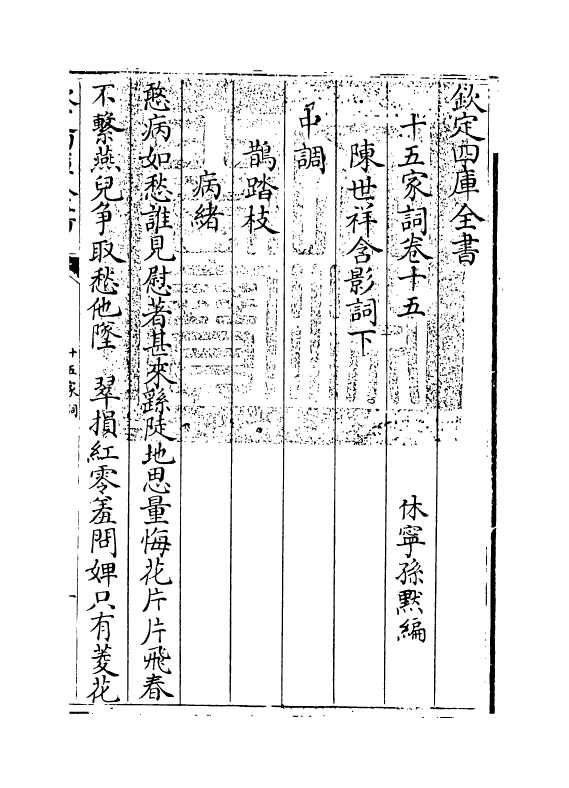 欽定四庫全書
十五家詞卷十五
休寧孫黙編
陳世祥含影詞下
中調
鵲踏枝
病緒
憨病如愁誰見慰著甚來繇陡地思量悔花片片飛春
不繫燕兒爭取愁他墜　翠損紅零羞問婢只有菱花
十五家詞